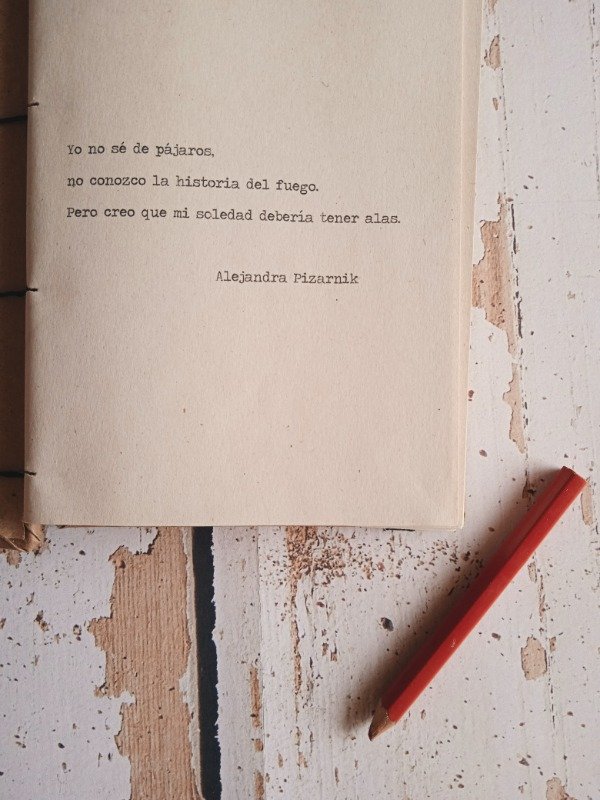 Yo no sé de pájaros,
no conozco la historia del fuego.
Pero creo que mi soledad debería tener alas.
Alejandra Pizarnik